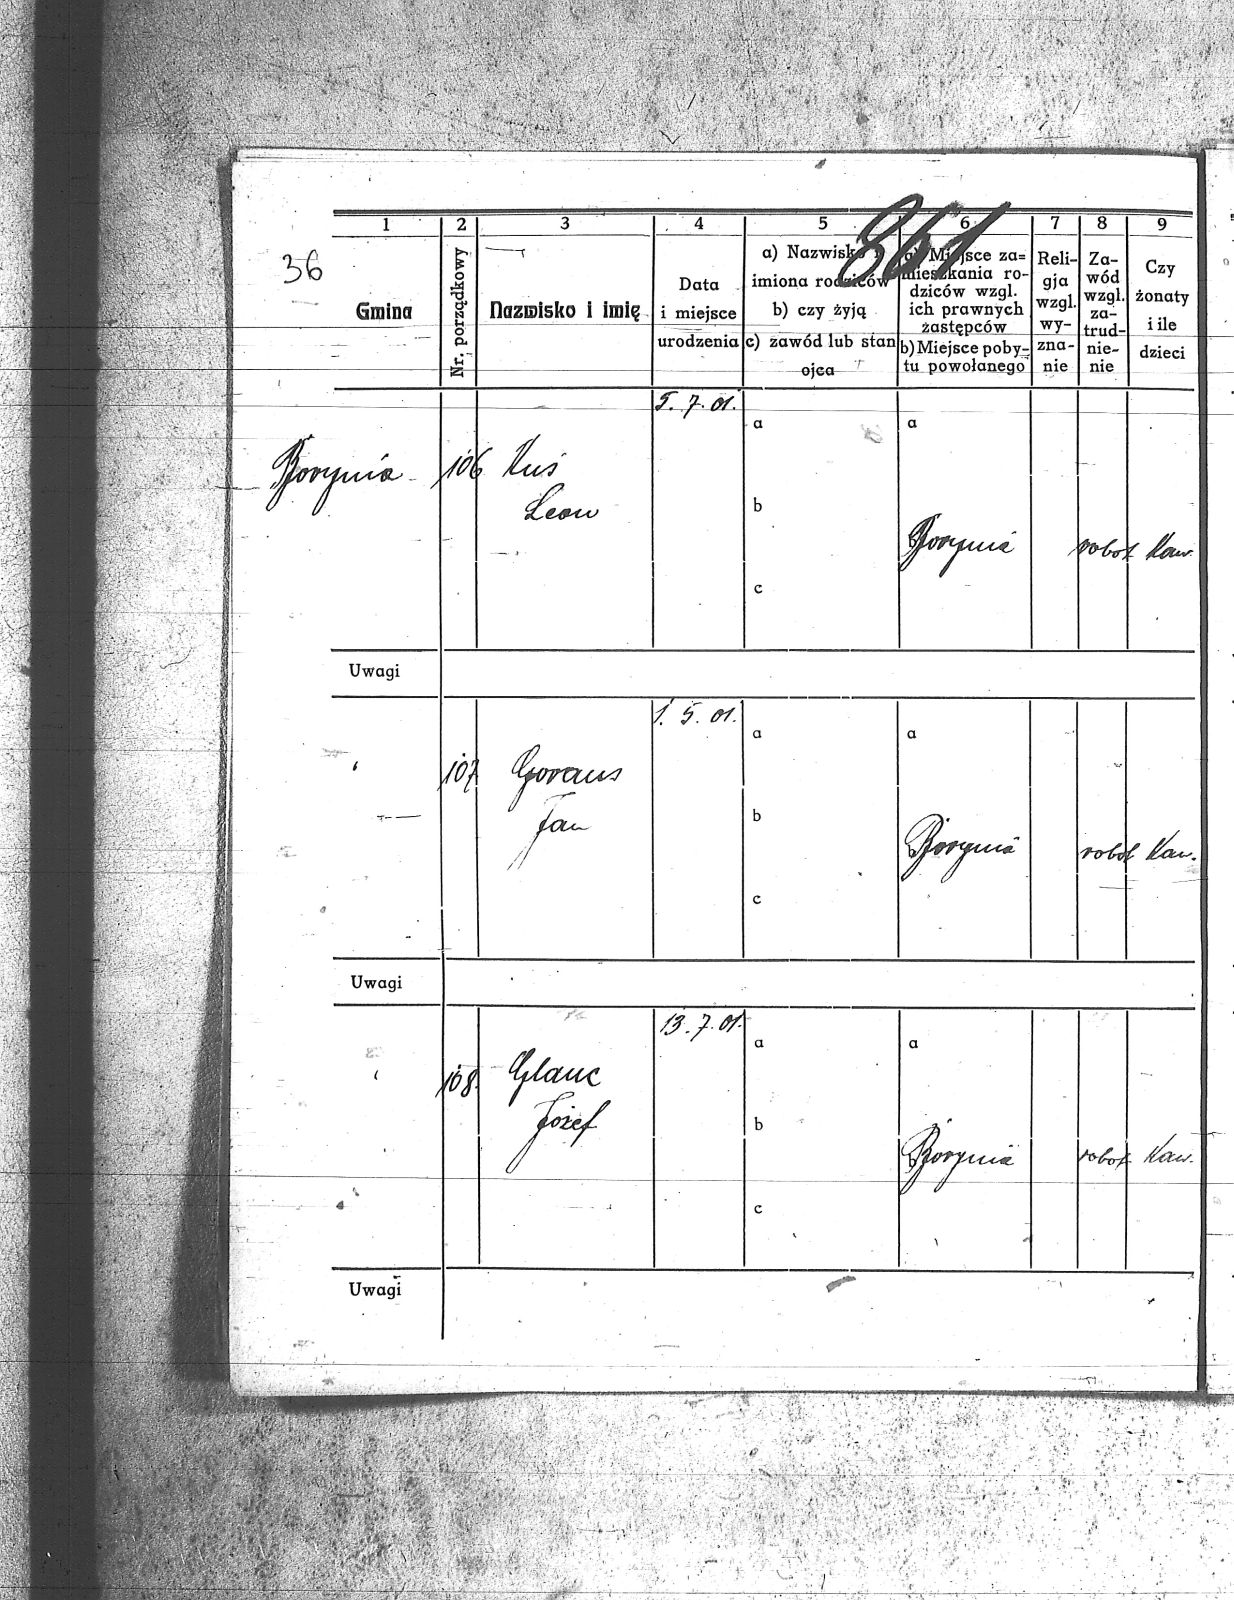 861
36
1 2 3 4 5 6 7 8 9
Gmina
Nr. porządkowy
Nazwisko i imię
Data
i miejsce
urodzenia
a) Nazwisko i
imiona rodziców
b) czy żyją
c) zawód lub stan
ojca
a) Miejsce za=
mieszkania ro-
dziców wzgl.
ich prawnych
zastępców
b) Miejsce poby-
tu powołanego
Reli-
gja
wzgl.
wy-
zna-
nie
Za-
wód
wzgl.
za-
trud-
nie-
nie
Czy
żonaty
i ile
dzieci
5. 7. 01.
a a
Borynia 106 Kuś
Leon
b
Borynia robot Kaw.
c
Uwagi
1. 5. 01.
a a
107 Goraus
Jan
b
Borynia robot Kaw.
c
Uwagi
13. 7. 01.
a a
108. Glauc
Józef
b
Borynia robot Kaw.
c
Uwagi